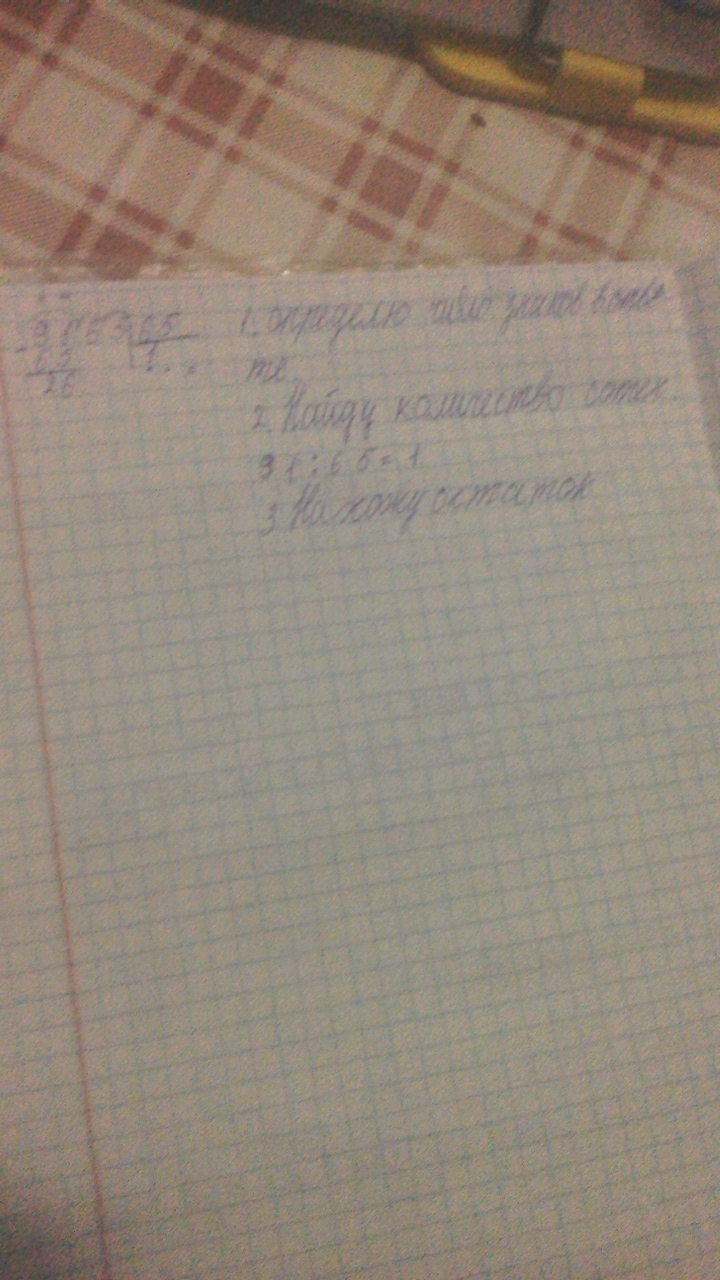 9153 65
65 1 . .
26
1. определю число знаков в отве
те.
2. Найду количество сотен.
91 : 65 = 1
3 Нахожу остаток